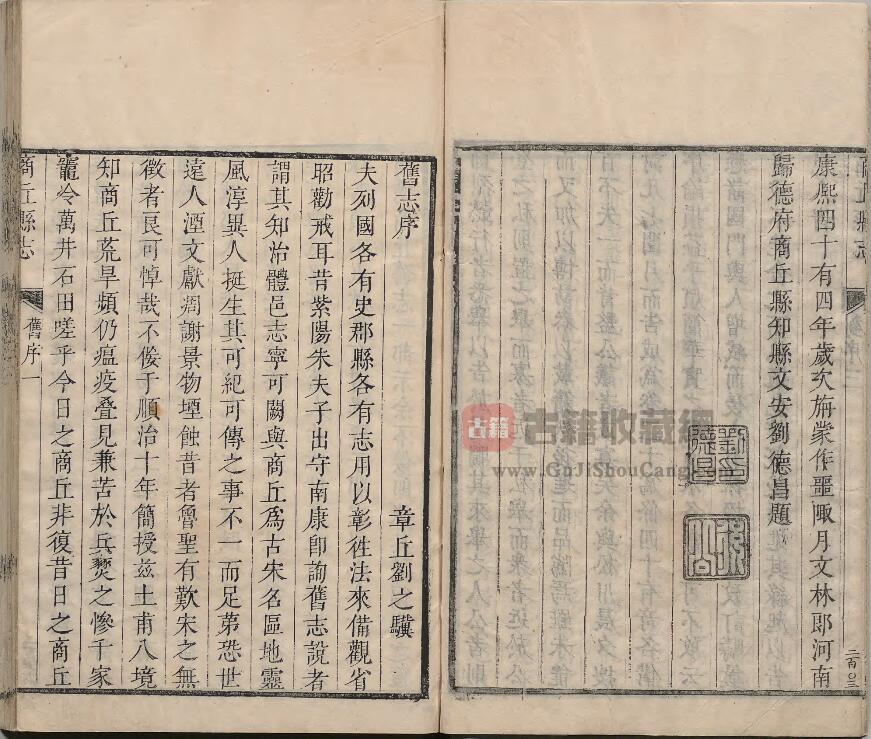 康熙四十有四年歲次旃蒙作噩陬月文林郎河南
歸德府商丘縣知縣文安劉德昌題
二百〇三
古籍 古籍收藏網
www.GuJiShouCang.com
舊志序
章丘劉之驥
夫列國各有史郡縣各有志用以彰徃法來備觀省
昭勸戒耳昔紫陽朱夫子出守南康卽詢舊志說者
謂其知治體邑志寧可闕與商丘爲古宋名區地靈
風淳異人挺生其可紀可傳之事不一而足第恐世
遠人湮文獻凋謝景物堙蝕昔者魯聖有歎宋之無
徵者良可悼哉不佞于順治十年簡授兹土甫入境
知商丘荒旱頻仍瘟疫叠見兼苦於兵燹之慘千家
竈冷萬井石田嗟乎今日之商丘非復昔日之商丘
商丘縣志
舊序一